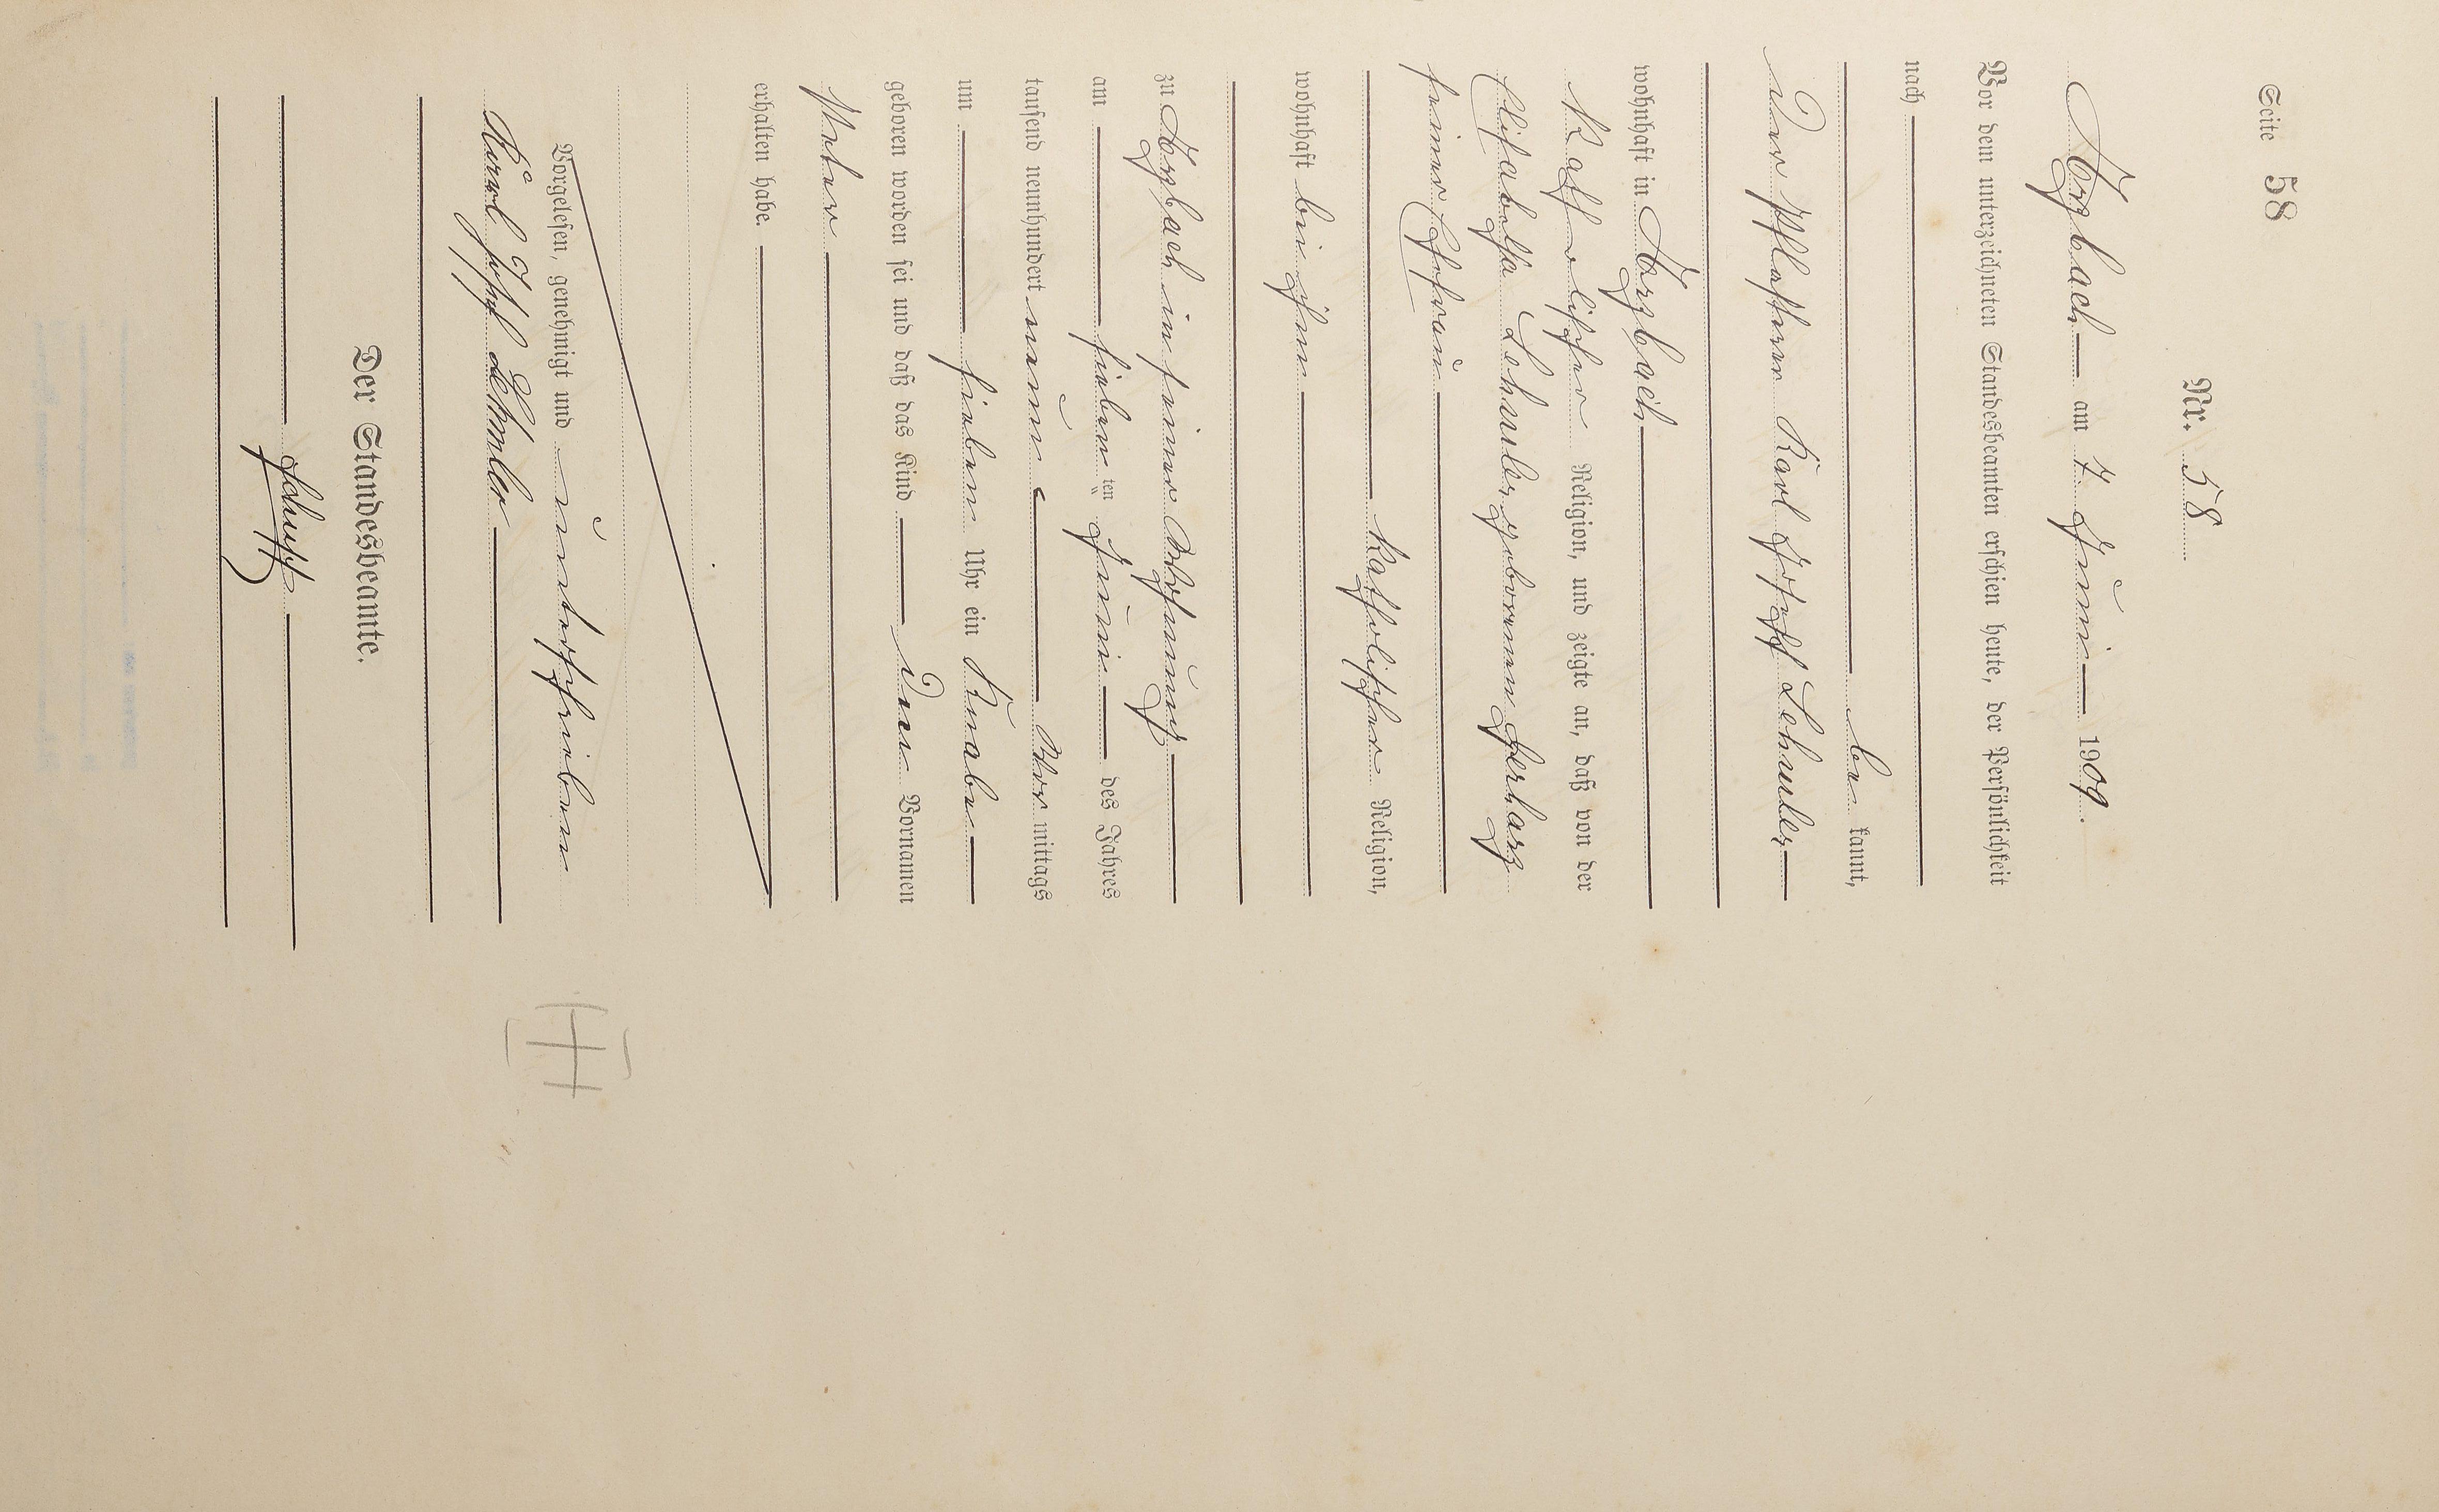 Seite 58
Nr. 58
am 7. Juni 1909.
Vor dem unterzeichneten Standesbeamten erschien heute, der Persönlichkeit
nach
be kannt,
Der Pflasterer Karl Joseph
wohnhaft in
Katholischer Religion, und zeigte an, daß von der
Elisabetha geborenen Herharz
seiner Ehefrau
katholischer Religion,
wohnhaft bei ihm
zu in seiner Wohnung
am sieben ten Juni des Jahres
tausend neunhundert neun Vor mittags
um sieben Uhr ein Knabe
geboren worden sei und daß das Kind den Vornamen
Peter
erhalten habe.
Vorgelesen, genehmigt und unterschrieben
Karl Josef
Der Standesbeamte.
Schupp